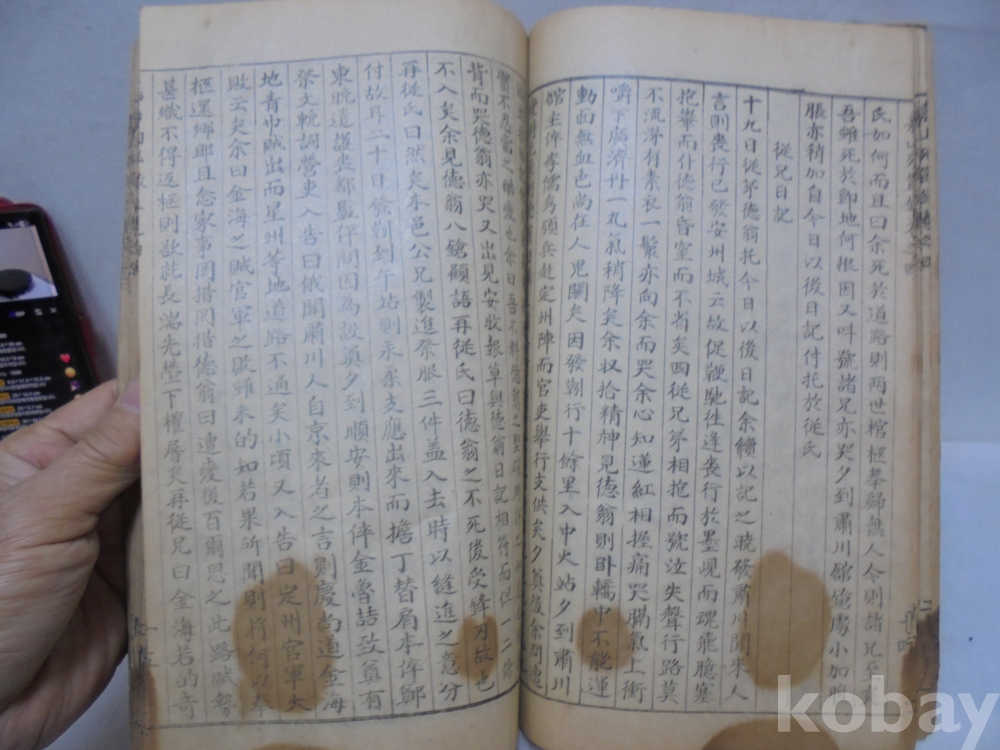 氏如何而且曰余死於道路則両世棺柩擧歸無人今則諸兄至
吾雖死於即地何根因又呌號諸兄亦哭夕到肅川舘舘處小加
脹亦稍加自今日以後日記付托於從氏
從兄日記
十九日從弟德翁托今日以後日記余續以記之曉發肅川聞來人
言則喪行已發安州城云故促鞭馳徃逢喪行於墨峴而魂飛膽塞
抱轝而仆德翁昏窒而不省矣四從兄弟相抱而號泣失聲行路莫
不流涕有素衣一鬟亦向余而哭余心知蓮紅相握痛哭膈氣上衝
嚼下廣濟丹一九氣稍降矣余収拾精神見德翁則卧轎中不能運
動面無血色尚在人鬼關矣因發靷行十餘里入中火站夕到肅川
舘主倅李儒秀領兵赴定州陣而官吏擧行支供矣夕奠後余
背而哭德翁亦哭又出見安牧報草與德翁日記相符而但一二條
不入矣余見德翁八鎗顚語再從氏曰德翁之不死後受鋒刃故也
再從氏曰然矣本邑公兄製進祭服三件盖入去時以縫進之意分
付故耳二十日發靷到午站則永柔支應出來而擔丁替肩本倅鄭
東晥遣護喪都監伻問因爲設奠夕到順安則本倅金魯喆致奠有
祭文輓詞營吏入告曰俄聞肅川人自京來者之言則慶尚道金海
地青巾賊出而星州等地道路不通矣小頃又入告曰定州官軍大
敗云矣余曰金海之賊官軍之敗雖未的知若果所聞則將何以奉
柩還鄕耶且念家事罔措罔措德翁曰連疲後百爾思之此路賊
甚熾不得返柩則欲葬長湍先塋下權居矣再從兄曰金海若的奇
kobay